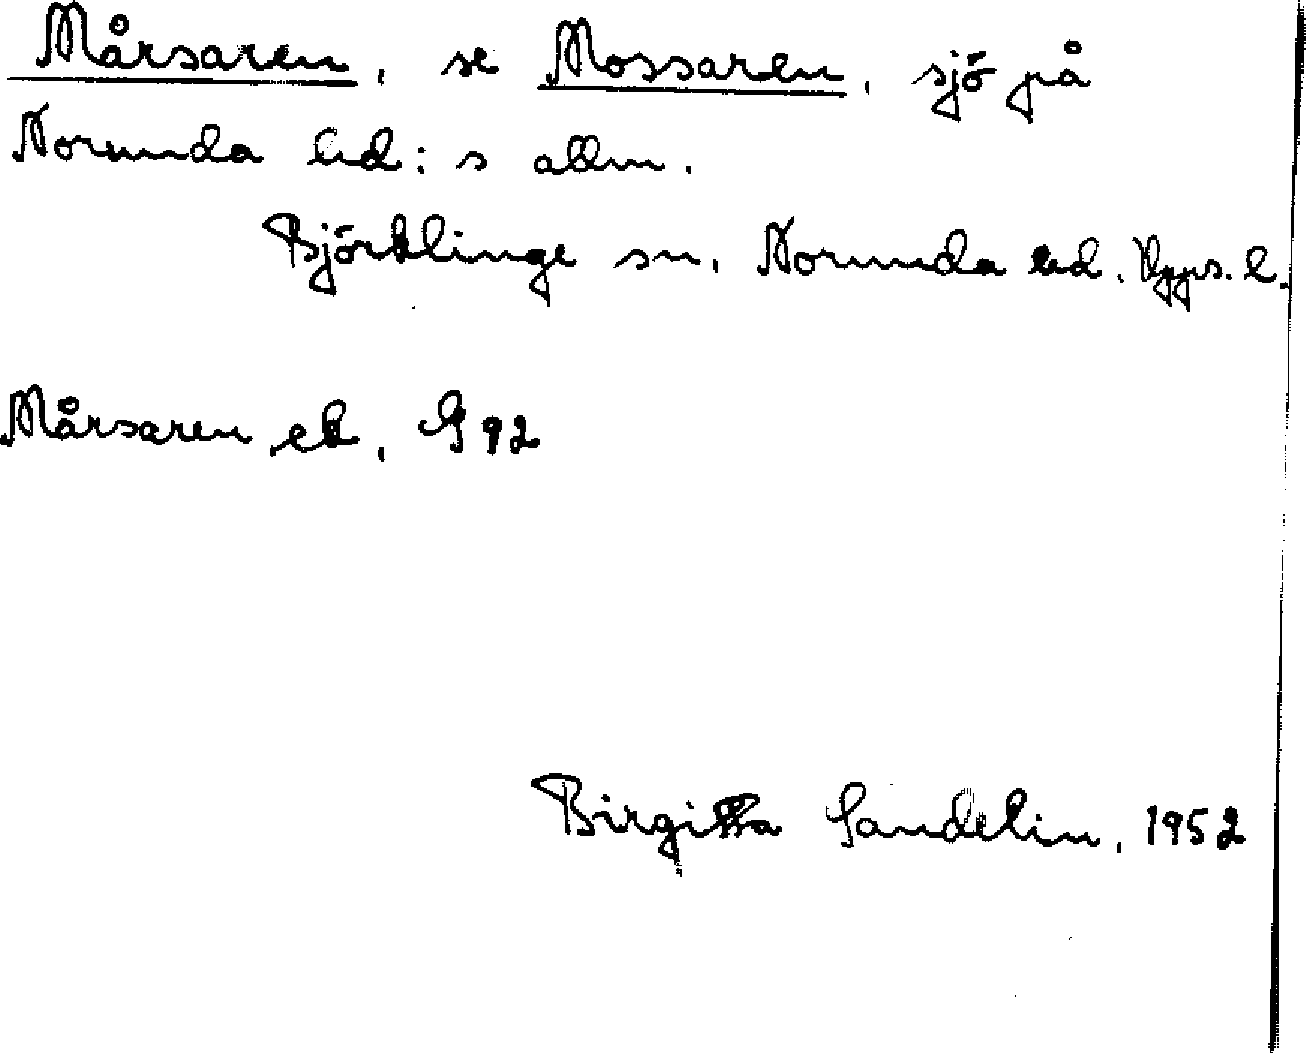 Mårsaren, se Mossaren, sjö på
Norunda hd:s allm.
Björklinge sn, Norunda hd. Upps. l.
Mårsaren ek, G 92
Birgitta Sandelin, 1952